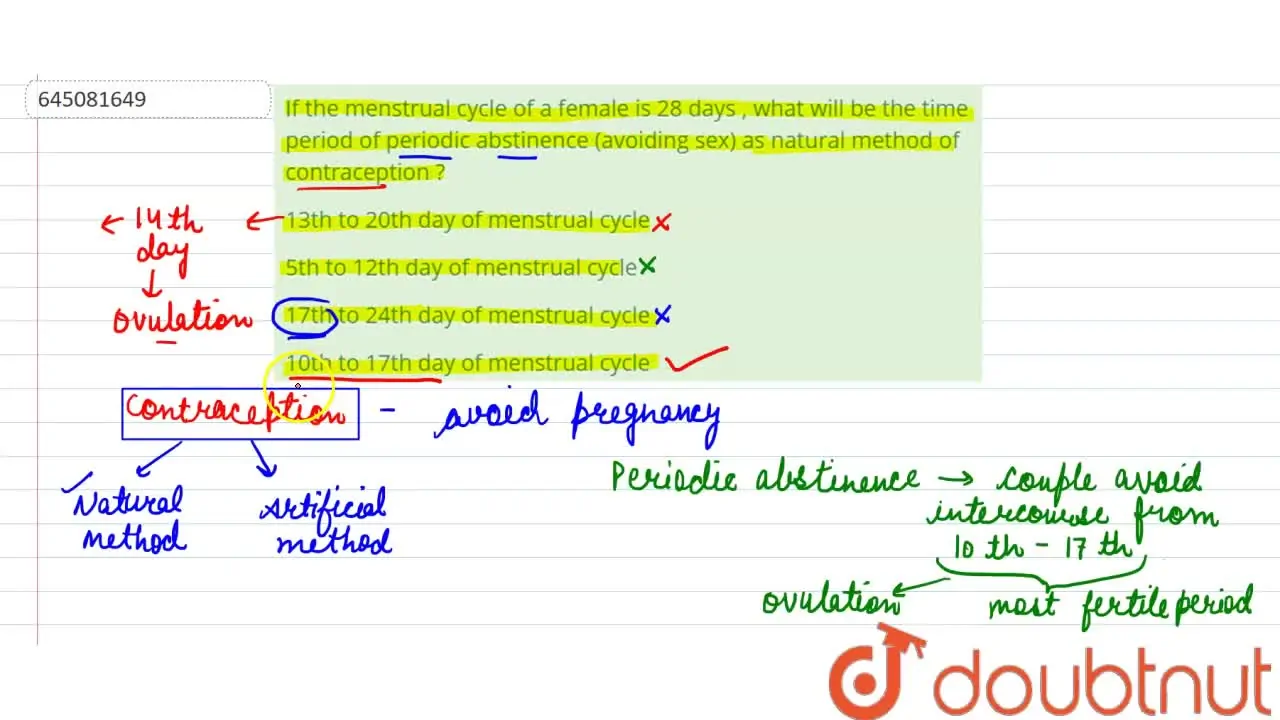 645081649
If the menstrual cycle of a female is 28 days , what will be the time
period of periodic abstinence (avoiding sex) as natural method of
contraception ?
13th to 20th day of menstrual cycle
5th to 12th day of menstrual cycle
17th to 24th day of menstrual cycle
10th to 17th day of menstrual cycle
14th
day
ovulation
Contraception - avoid pregnancy
Natural
method
Artificial
method
Periodic abstinence → couple avoid
intercourse from
10 th - 17 th
ovulation
most fertile period
doubtnut